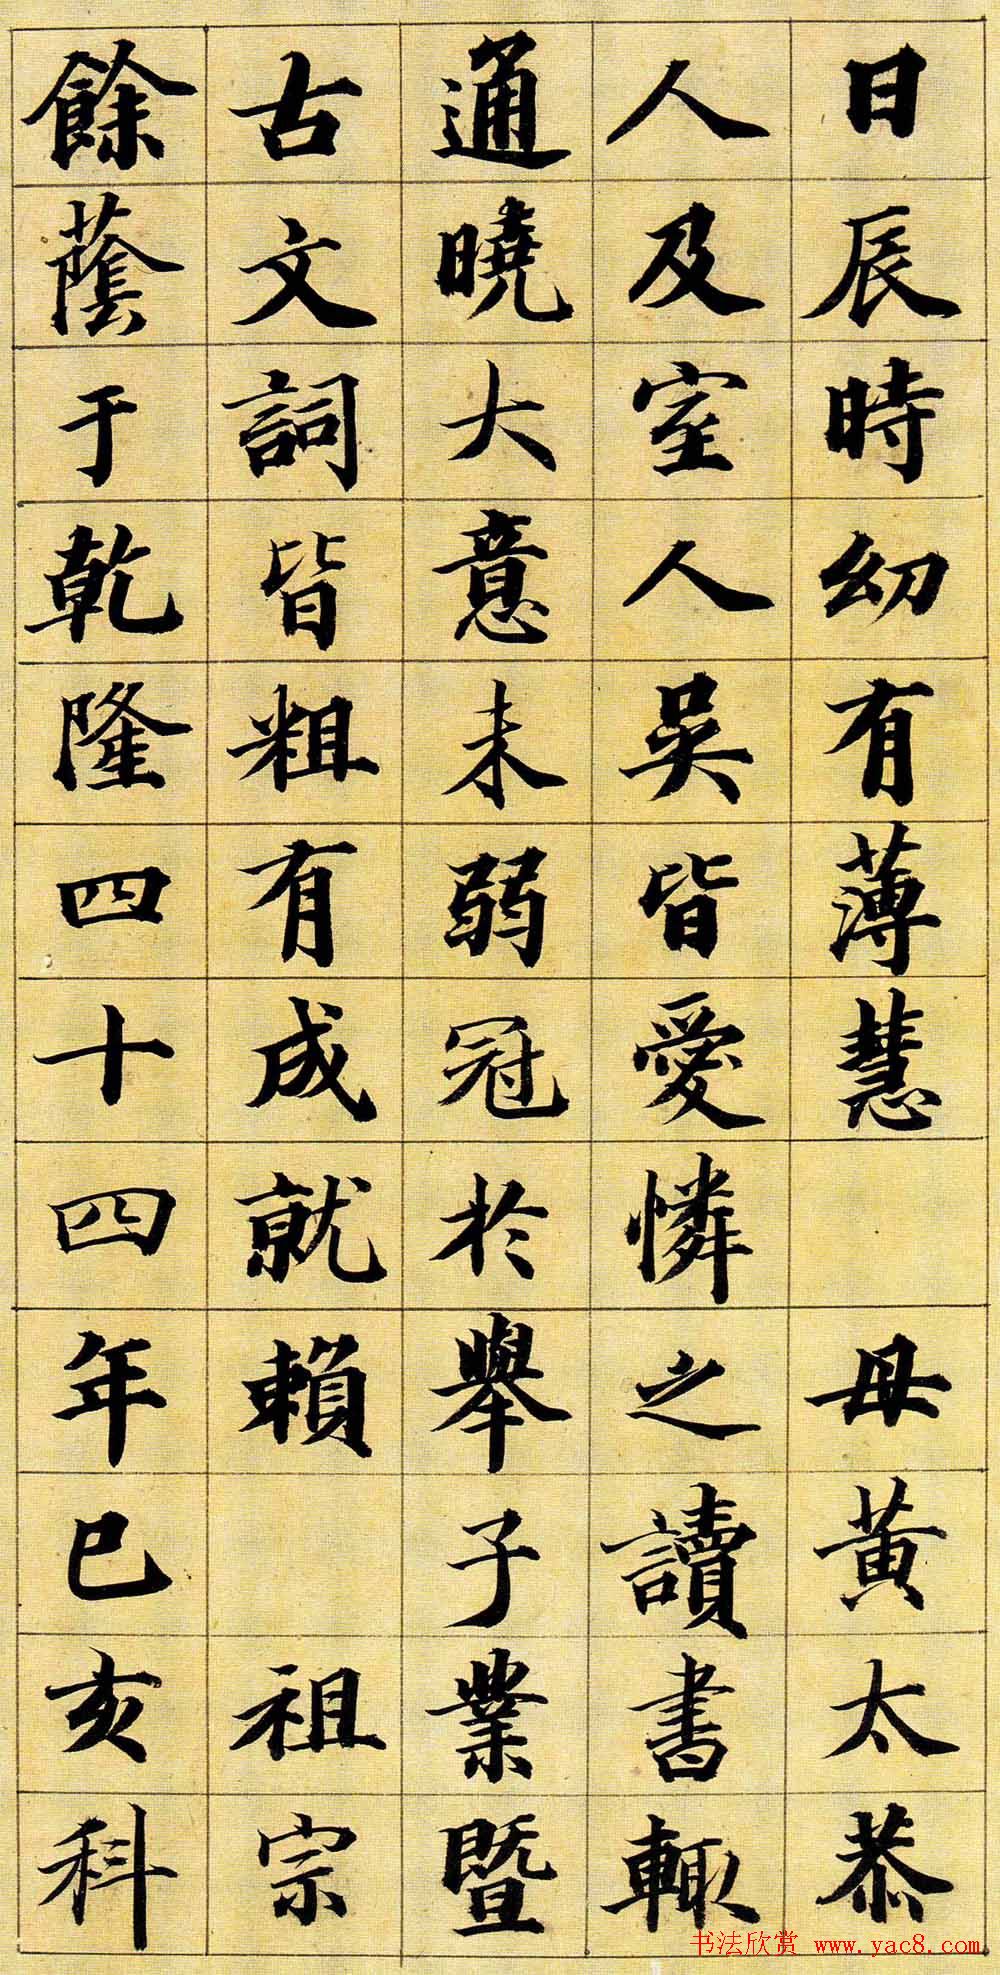 日辰時幼有薄慧 母黄太恭
人及室人吳皆愛憐之讀書輙
通曉大意未弱冠於舉子業暨
古文詞皆粗有成就賴 祖宗
餘蔭于乾隆四十四年巳亥科
书法欣赏 www.yac8.com